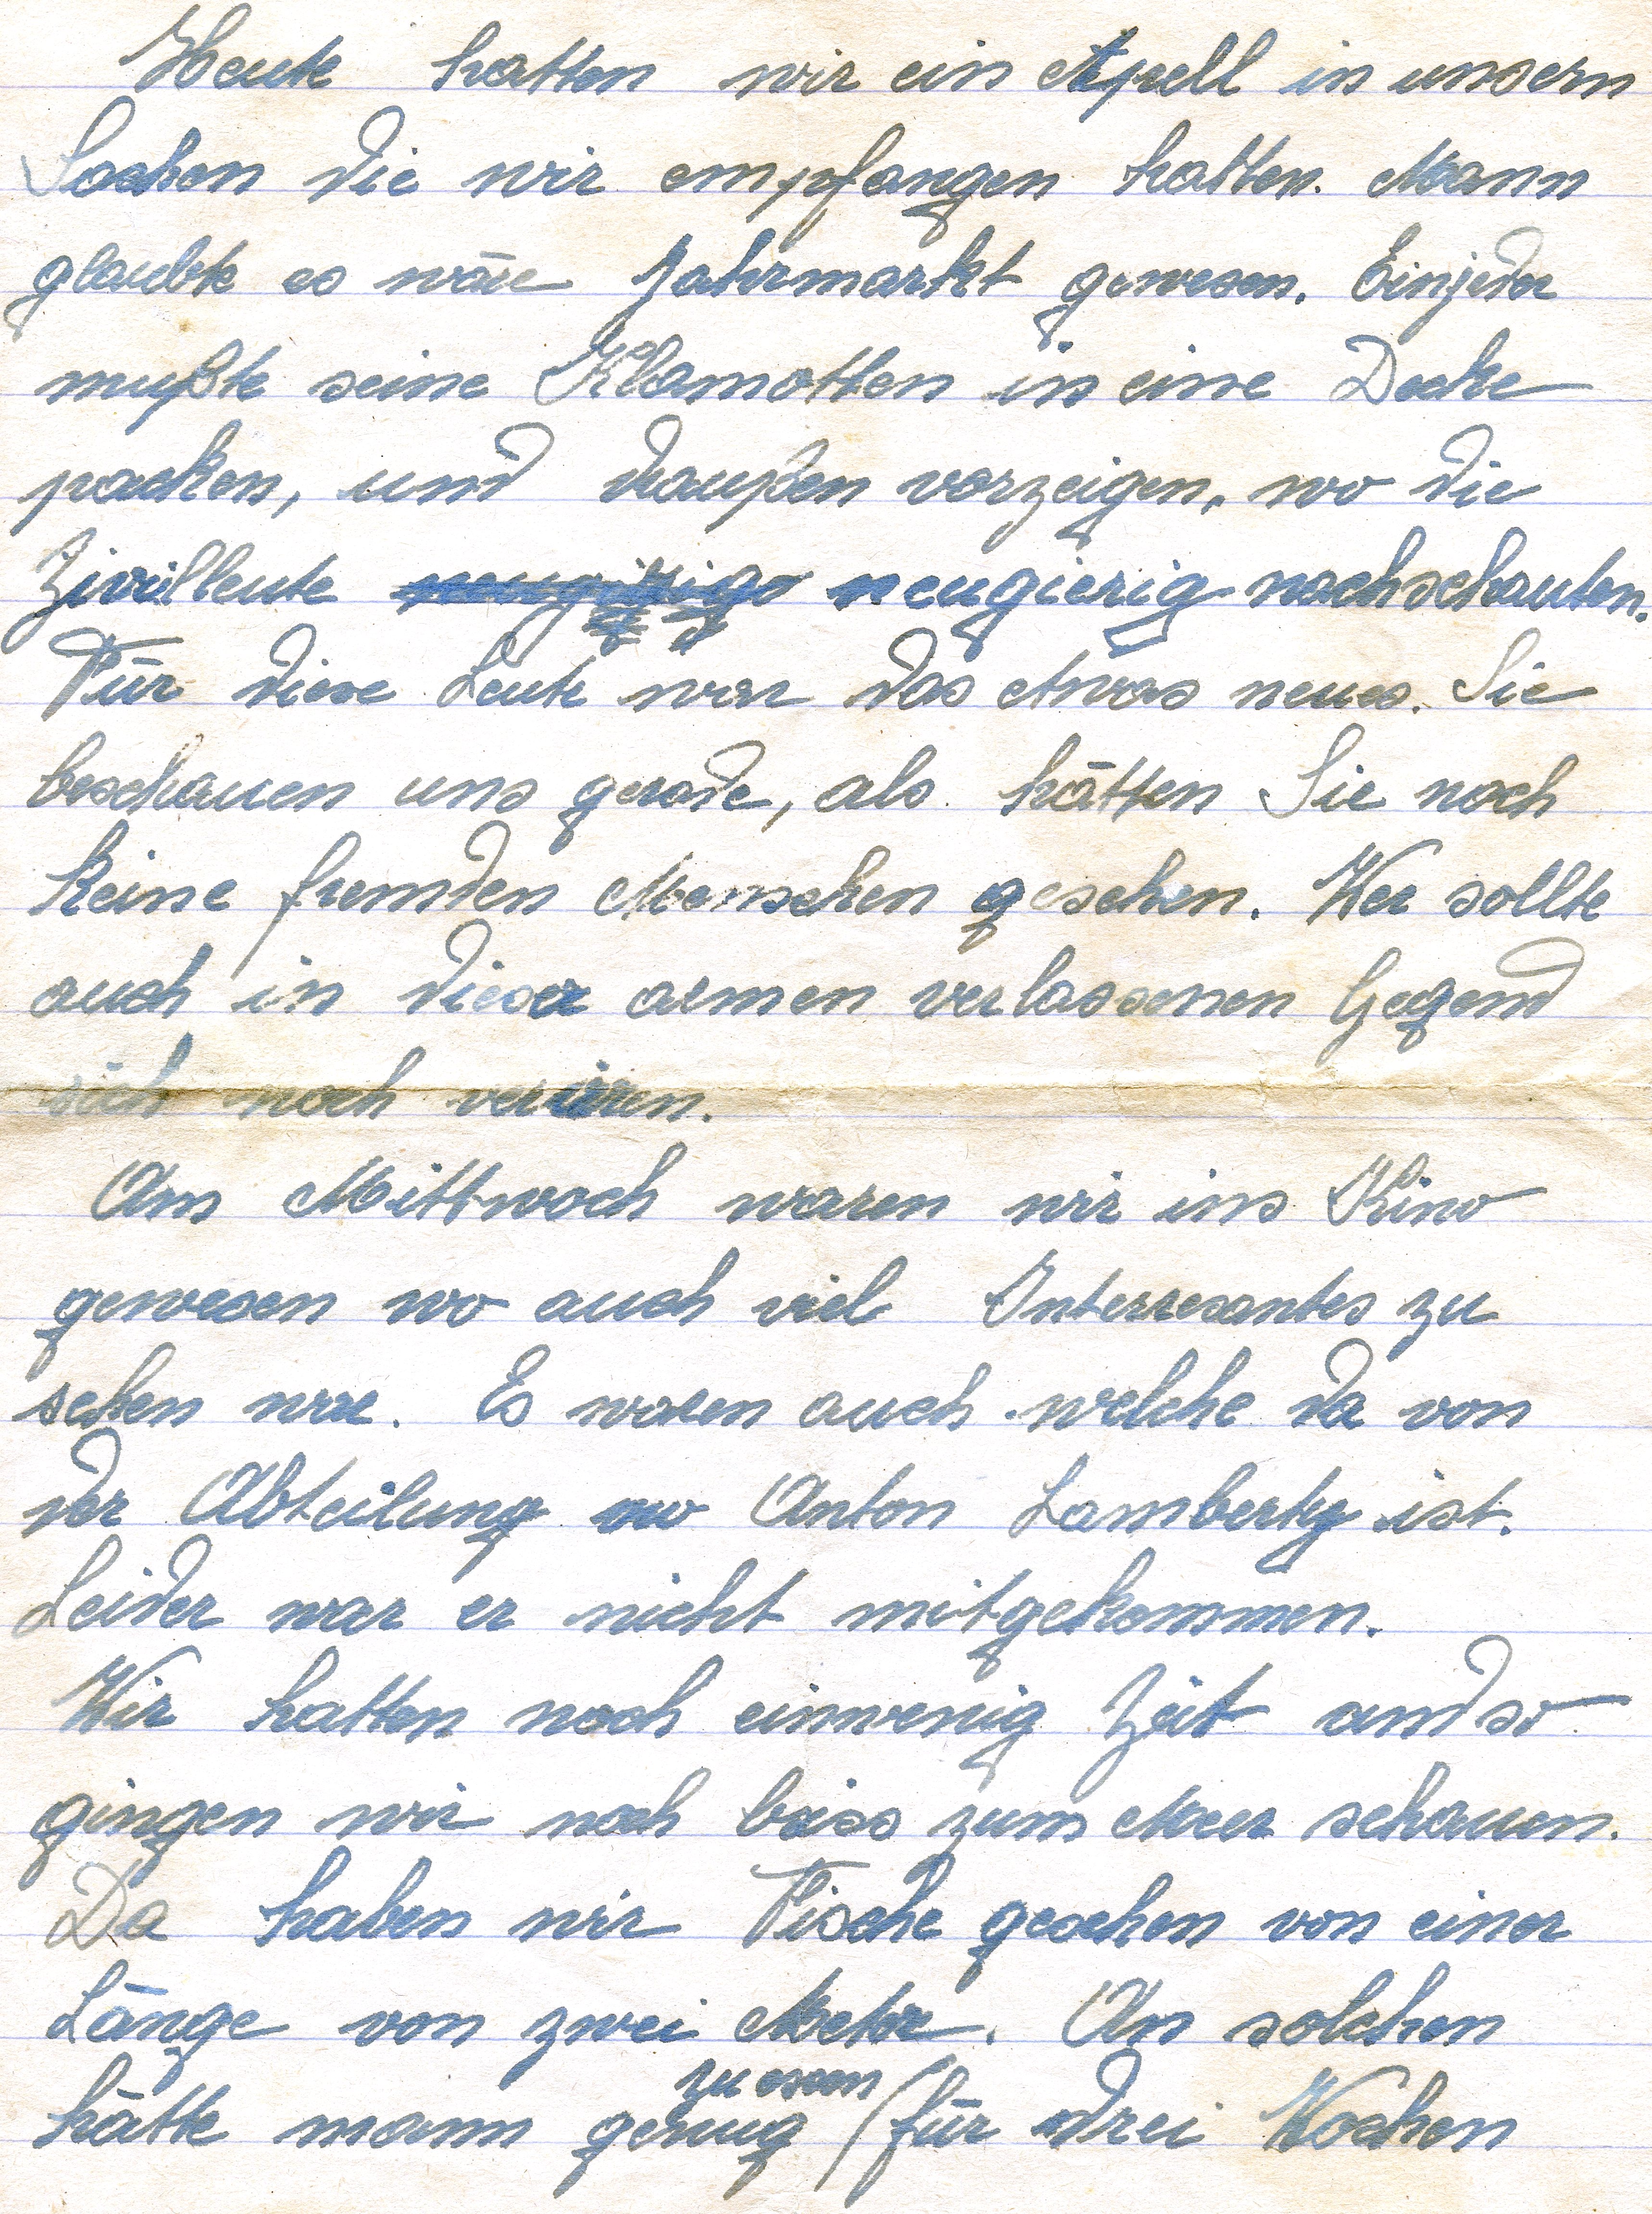 Heute hatten wir ein Apell in unsern
Sachen die wir empfangen hatten. Mann
glaubte es wäre Jahrmarkt gewesen. Einjeder
mußte seine Klamotten in eine Decke
packen, und draußen vorzeigen, wo die
Zivilleute neugierig nachschauten.
Für diese Leute war das etwas neues. Sie
beschauen uns gerade, als hätten Sie noch
keine fremden Menschen gesehen. Wer sollte
auch in dieser armen verlassenen Gegend
sich noch verirren.
Am Mittwoch waren wir ins Kino
gewesen wo auch viel Interresantes zu
sehen war. Es waren auch welche da von
der Abteilung wo Anton Lamberty ist.
Leider war er nicht mitgekommen.
Wir hatten noch einwenig Zeit und so
gingen wir noch biss zum Meer schauen.
Da haben wir Fische gesehen von einer
Länge von zwei Meter. An solchen
zu essen
hätte mann genug / für drei Wochen